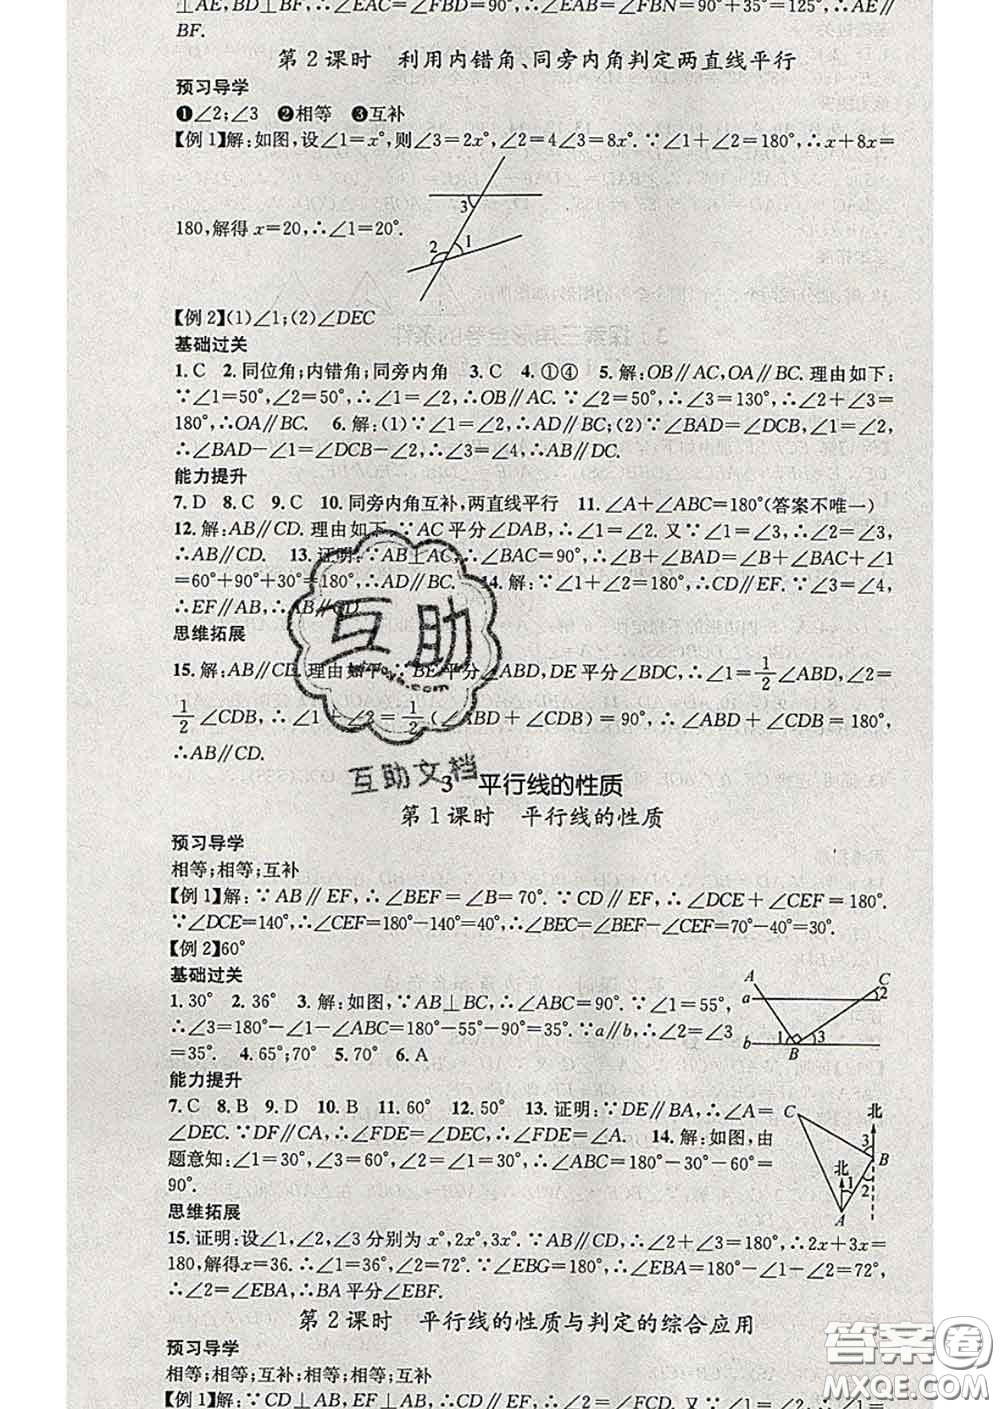 ⊥AE,BD⊥BF,∴∠EAC=∠FBD=90°,∴∠EAB=∠FBN=90°+35°=125°,∴AE∥
BF.
第2课时 利用内错角、同旁内角判定两直线平行
预习导学
❶∠2;∠3 ❷相等 ❸互补
【例1】解:如图,设∠1=x°,则∠3=2x°,∠2=4∠3=8x°.∵∠1+∠2=180°,∴x+8x=
180,解得x=20,∴∠1=20°.
3
2
1
【例2】(1)∠1;(2)∠DEC
基础过关
1.C 2.同位角;内错角;同旁内角 3.C 4.①④ 5.解:OB∥AC,OA∥BC.理由如下:
∵∠1=50°,∠2=50°,∴∠1=∠2,∴OB∥AC.∵∠2=50°,∴∠3=130°,∴∠2+∠3=
180°,∴OA∥BC. 6.解:(1)∵∠1=∠2,∴AD∥BC;(2)∵∠BAD=∠DCB,∠1=∠2,
∴∠BAD-∠1=∠DCB-∠2,∴∠3=∠4,∴AB∥DC.
能力提升
7.D 8.C 9.C 10.同旁内角互补,两直线平行 11.∠A+∠ABC=180°(答案不唯一)
12.解:AB∥CD.理由如下:∵AC平分∠DAB,∴∠1=∠2.又∵∠1=∠3,∴∠2=∠3,
∴AB∥CD. 13.证明:∵AB⊥AC,∴∠BAC=90°,∴∠B+∠BAD=∠B+∠BAC+∠1
=60°+90°+30°=180°,∴AD∥BC. 14.解:∵∠1+∠2=180°,∴CD∥EF.∵∠3=∠4,
∴EF∥AB,∴AB∥CD.
思维拓展
15.解:AB∥CD.理由如下:∵BE平分∠ABD,DE平分∠BDC,∴∠1=1/2∠ABD,∠2=
1/2∠CDB,∴∠1+∠2=1/2(∠ABD+∠CDB)=90°,∴∠ABD+∠CDB=180°,
∴AB∥CD.
互助
互助文档
3 平行线的性质
第1课时 平行线的性质
预习导学
相等;相等;互补
【例1】解:∵AB∥EF,∴∠BEF=∠B=70°.∵CD∥EF,∴∠DCE+∠CEF=180°.
∵∠DCE=140°,∴∠CEF=180°-140°=40°,∴∠BEC=∠BEF-∠CEF=70°-40°=30°.
【例2】60°
基础过关
1.30° 2.36° 3.解:如图,∵AB⊥BC,∴∠ABC=90°.∵∠1=55°,
∴∠3=180°-∠1-∠ABC=180°-55°-90°=35°.∵a∥b,∴∠2=∠3
=35°. 4.65°;70° 5.70° 6.A
A
C
a
2
b
1
3
B
能力提升
7.C 8.B 9.D 10.B 11.60° 12.50° 13.证明:∵DE∥BA,∴∠A=
∠DEC.∵DF∥CA,∴∠FDE=∠DEC,∴∠FDE=∠A. 14.解:如图,由
题意知:∠1=30°,∠3=60°,∴∠2=∠1=30°,∴∠ABC=180°-30°-60°=
90°.
C
北
3
B
北
1
2
A
思维拓展
15.证明:设∠1,∠2,∠3分别为x°,2x°,3x°.∵AB∥CD,∴∠2+∠3=180°,∴2x+3x=
180,解得x=36.∴∠1=36°,∠2=72°.∵∠EBG=180°,∴∠EBA=180°-(∠1+∠2)=72°,
∴∠2=∠EBA,∴BA平分∠EBF.
第2课时 平行线的性质与判定的综合应用
预习导学
相等;相等;互补;相等;相等;互补
【例1】解:∵CD⊥AB,EF⊥AB,∴CD∥EF,∴∠2=∠FCD.又∵∠1=∠2,∴∠1=
答案圈
MXQE.COM